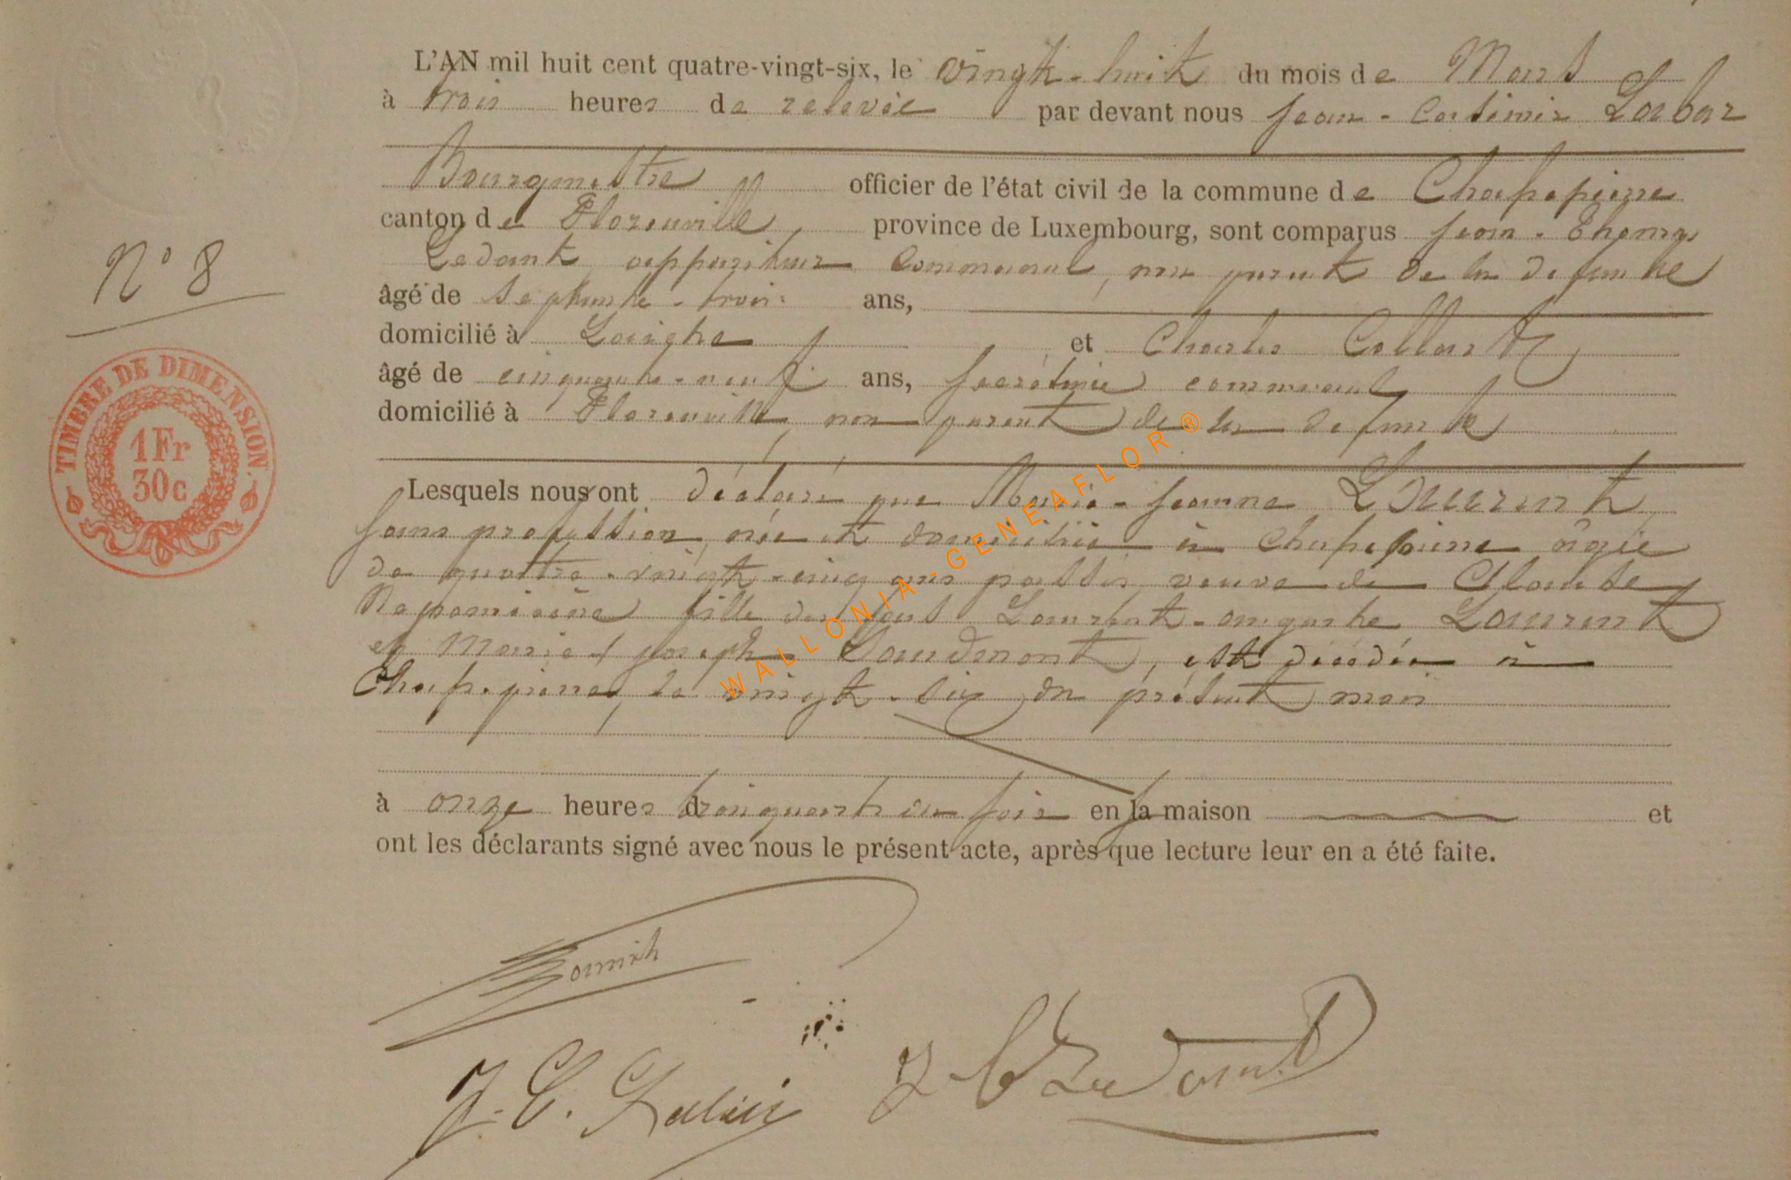 L'AN mil huit cent quatre-vingt-six, le vingt-huit du mois de Mars
à trois heures de relevée par devant nous Jean-Casimir Labar
Bourgmestre officier de l'état civil de la commune de Chassepierre
canton de Florenville, province de Luxembourg, sont comparus Jean-Thomas
Ledant, appariteur communal, non parent de la défunte
âgé de septante-trois ans,
domicilié à Laiche et Charles Collart
âgé de cinquante-neuf ans, secrétaire communal
domicilié à Florenville, non parent de la défunte
Lesquels nous ont déclaré que Marie-Jeanne Laurent,
sans profession, née et domiciliée à Chassepierre âgée
de quatre-vingt-cinq ans passés, veuve de Claude
fille des feus Laurent Laurent
et Marie-Joseph, est décédée à
Chassepierre, le vingt-six du présent mois
à onze heures trois quarts du soir en la maison et
ont les déclarants signé avec nous le présent acte, après que lecture leur en a été faite.
N° 8
TIMBRE DE DIMENSION.
1Fr
30c
WALLONIA-GENEAFLOR®